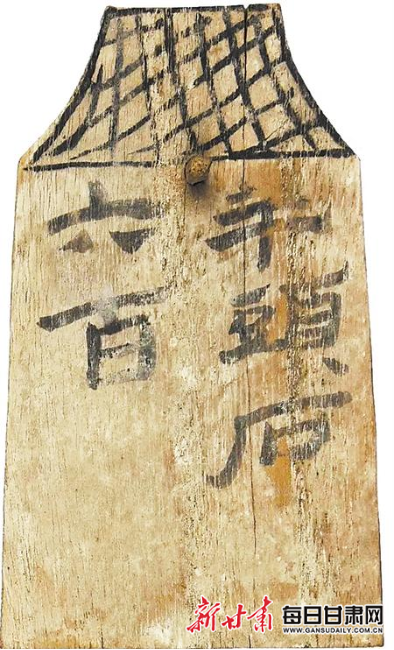 羊頭石
六百
新甘肃
每日甘肃网
WWW.GANSUDAILY.COM.CN